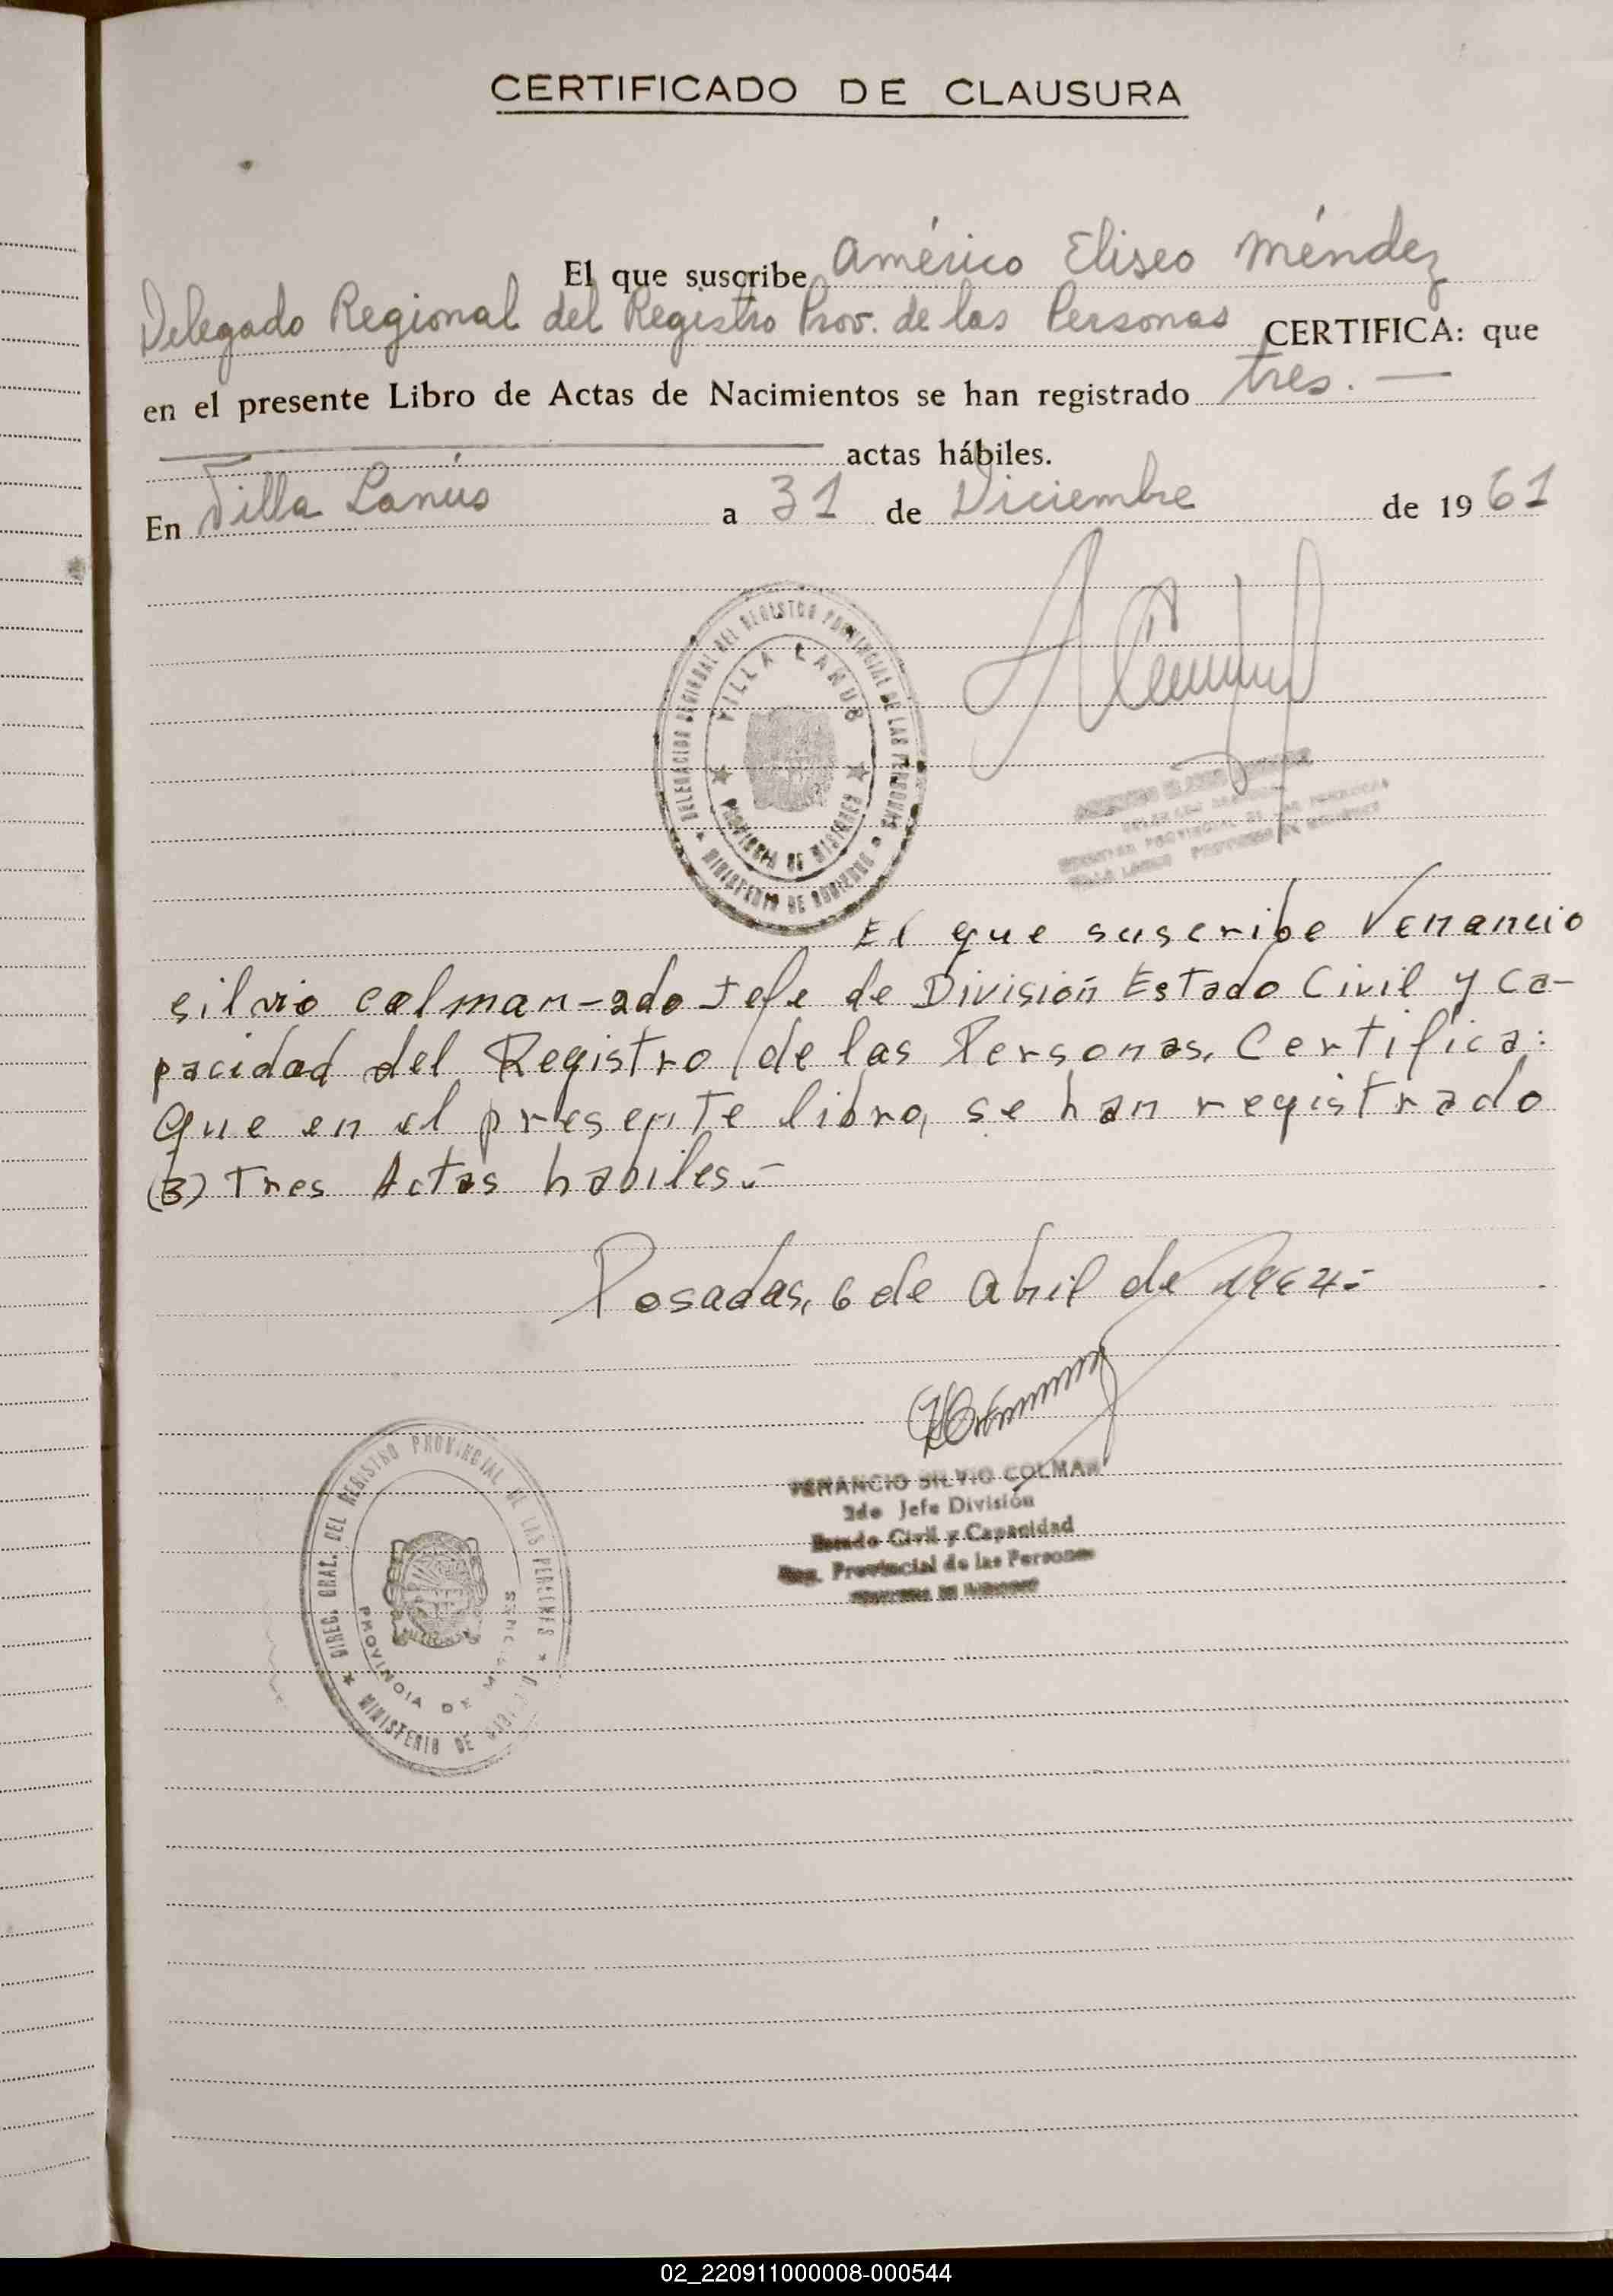 CERTIFICADO DE CLAUSURA
El que suscribe Américo Eliseo Méndez
Delegado Regional del Registro Prov. de las Personas CERTIFICA: que
en el presente Libro de Actas de Nacimientos se han registrado tres. —
actas hábiles.
En Villa Lanús a 31 de Diciembre de 1961
DELEGACION REGIONAL DEL REGISTRO PROVINCIAL DE LAS PERSONAS
VILLA LANUS
PROVINCIA DE MISIONES
MINISTERIO DE GOBIERNO
El que suscribe Venancio
silvio colman-2do Jefe de División Estado Civil y Ca-
pacidad del Registro de las Personas. Certifica:
Que en el presente libro, se han registrado
(3) Tres Actas habiles.-
Posadas, 6 de abril de 1964.-
VENANCIO SILVIO COLMAN
2do Jefe División
Estado Civil y Capacidad
Reg. Provincial de las Personas
DIREC. GRAL. DEL REGISTRO PROVINCIAL DE LAS PERSONAS
PROVINCIA DE MISIONES
MINISTERIO DE
02_220911000008-000544